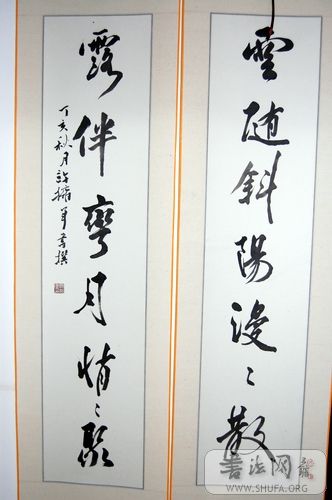 雲随斜陽漫〻散
露伴彎月悄〻聚
丁亥秋月許擁軍書撰
書法网
WWW.SHUFA.ORG